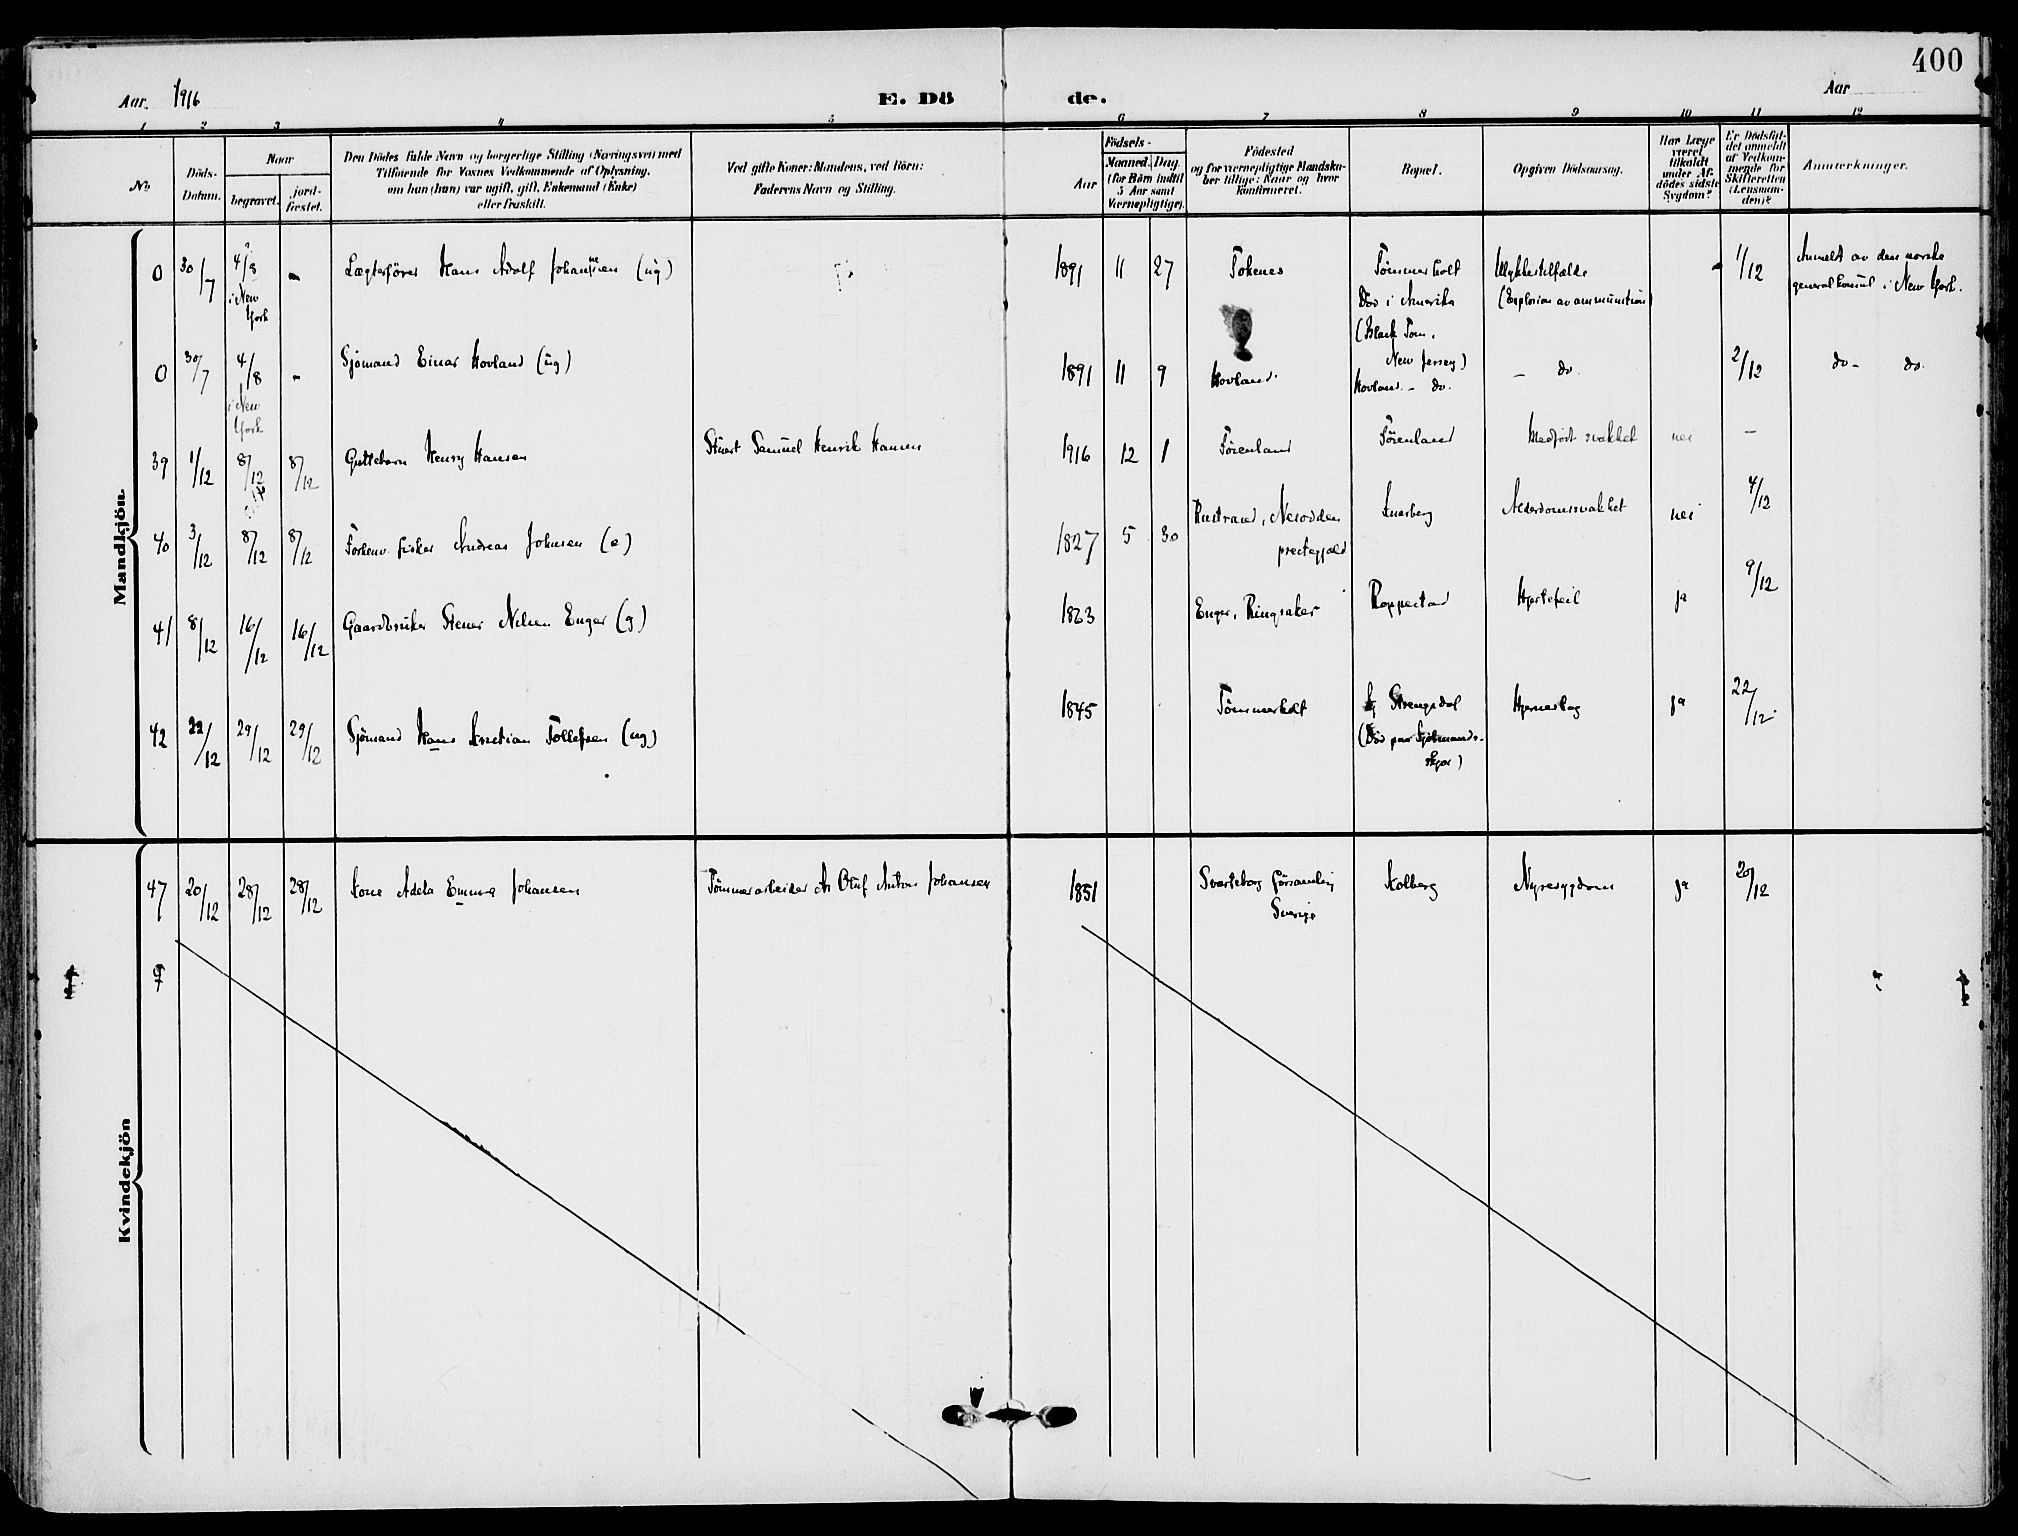 400
Aar. 1916
E. Dö de.
Aar
1 2 3 4 5 6 7 8 9 10 11 12
No
Döds-
Datum.
Naar
begravet.
jord-
fæstet.
Den Dödes fulde Navn og borgerlige Stilling (Næringsvei) med
Tilföiende for Voxnes Vedkommende af Oplysning,
om han (hun) var ugift, gift, Enkemand (Enke)
eller fraskilt.
Ved gifte Koner: Mandens, ved Börn:
Faderens Navn og Stilling.
Aar
Födsels-
Maaned. Dag.
(for Börn indtil
5 Aar samt
Værnepligtige).
Födested
og for værnepligtige Mandska-
ber tillige: Naar og hvor
konfirmeret.
Bopæl.
Opgiven Dödsaarsag.
Har Læge
været
tilkaldt
under Af-
dödes sidste
Sygdom?
Er Dödsfal-
det anmeldt
af Vedkom-
mende for
Skifteretten
(Lensman-
den)?
Anmærkninger.
Mandkjön.
0 30/7 4/8 - Lægterfører Hans Adolf Johannsen (ug) 1891 11 27 Tokenes Tømmerholt Ulykkestilfælde - 1/12 Anmeldt av den norske
i New York
Død i Amerika
(Explosion av ammunition)
generalkonsul i New York.
(Black Tom,
New Jersey)
0 30/7 4/8 - Sjømand Einar Hovland (ug) 1891 11 9 Hovland Hovland - do. - do. 2/12 do - do.
i New York
39 1/12 8/12 8/12 Guttebarn Henry Hansen Stuert Samuel Henrik Hansen 1916 12 1 Førenland Førenland Medfødt svakhet nei -
40 3/12 8/12 8/12 Forhenv. fisker Andreas Johnsen (e) 1827 5 30 Rustrand, Nesodden
prestegjeld
Alderdomssvakhet nei 4/12
41 8/12 16/12 16/12 Gaardbruker Stener Nilsen Enger (g) 1863 Enger, Ringsaker Roppestad Hjertefeil ja 9/12
42 22/12 29/12 29/12 Sjømand Hans Kristian Tollefsen (ug) 1845 Tømmerholt Strengsdal
Hjerneslag ja 22/12
Kvindekjön
47 20/12 28/12 28/12 Kone Adela Emma Johansen Tømmerarbeider Oluf Anton Johansen 1851 Svarteborg församling
Sverige
Kolberg Nyresygdom ja 20/12